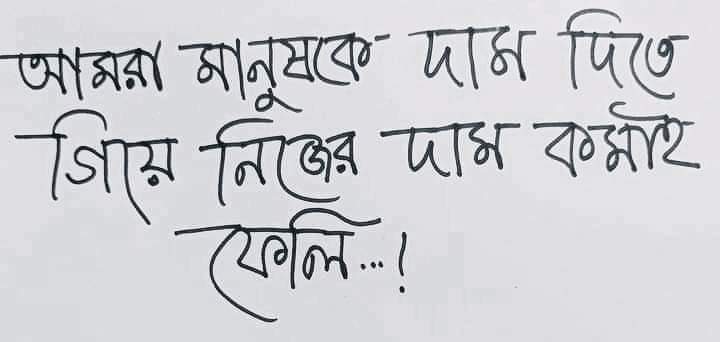 আমরা মানুষকে দাম দিতে
গিয়ে নিজের দাম কমাই
ফেলি...!